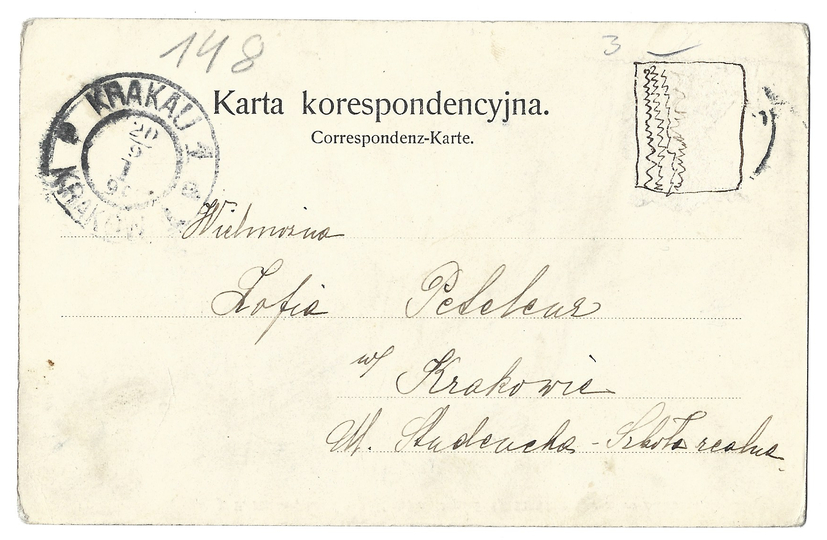 148
3
KRAKAU 1
KRAKÓW
Karta korespondencyjna.
Correspondenz-Karte.
Wielmożna
Zofia Petelenz
w/ Krakowie
Ul. Studencka - Szkoła realna